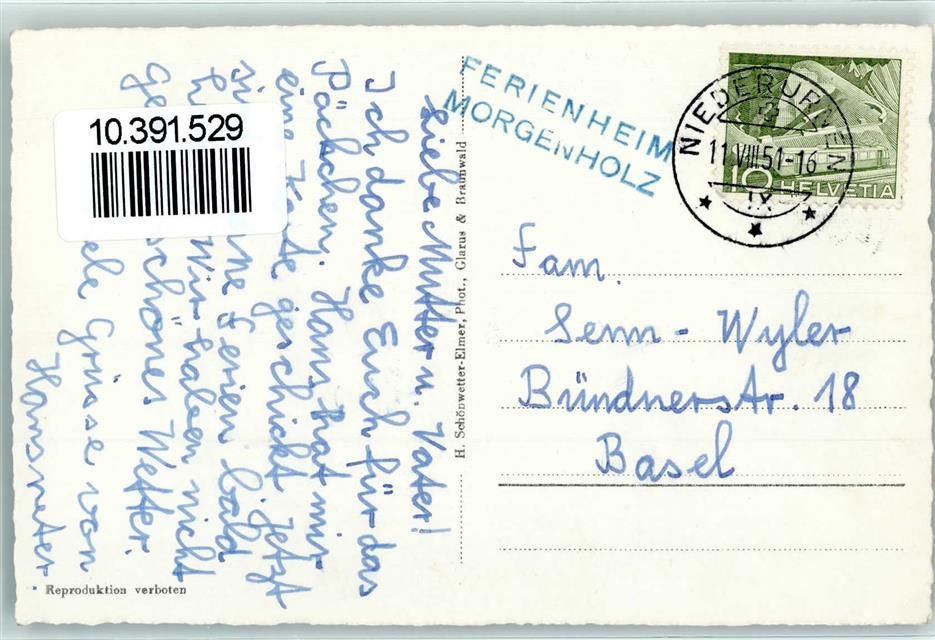 Liebe Mutter u. Vater!
Ich danke Euch für das
Päckchen. Hans hat mir
eine Karte geschickt. Jetzt
Ferien bald
Wir haben nicht
schönes Wetter.
Grüsse von
Hanspeter
10.391.529
FERIENHEIM
MORGENHOLZ
NIEDERURNEN
11.VIII.51-16
IX
10 HELVETIA
H. Schönwetter-Elmer, Phot., Glarus & Braunwald
Fam.
Senn-Wyler
Bündnerstr. 18
Basel
Reproduktion verboten